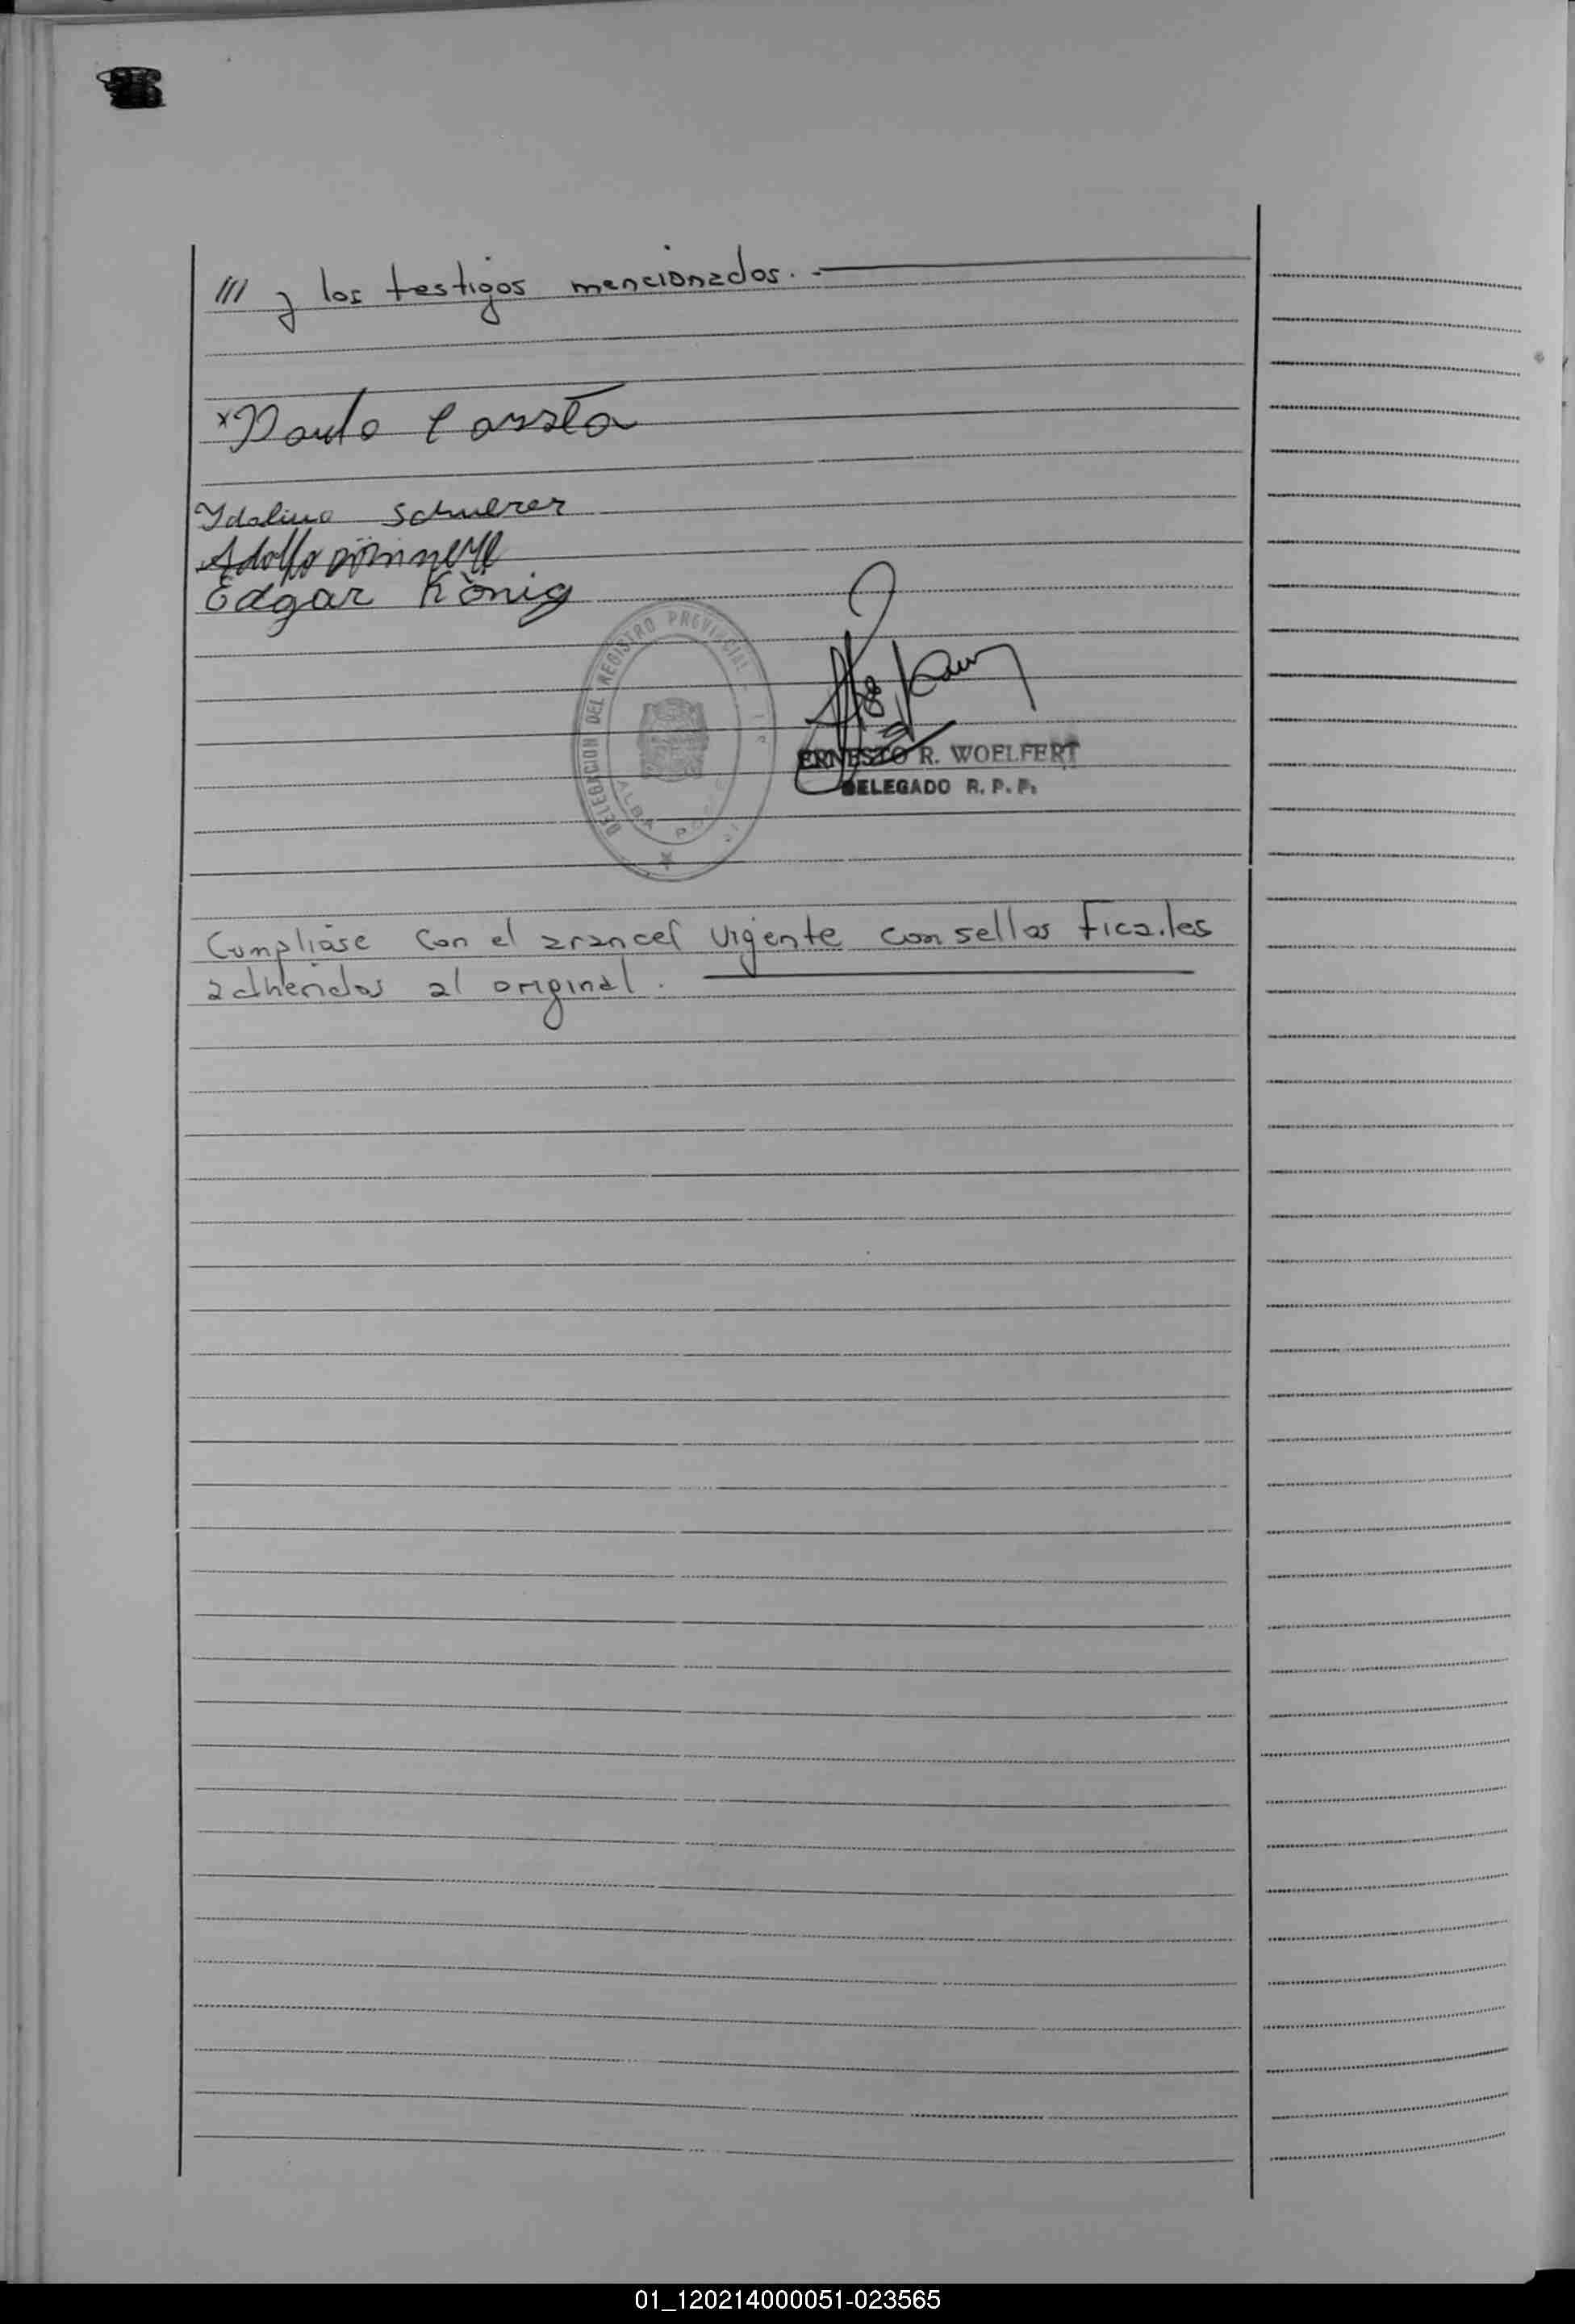 /// y los testigos mencionados. -
x Paulo Cassta
Ydalina Schuerer
Adolfo
Edgar König
DELEGACION DEL REGISTRO PROVINCIAL
ALBA POSSE
ERNESTO R. WOELFERT
DELEGADO R. P. P.
Cumpliose con el arancel vigente con sellos ficales
adheridos al original.
01_120214000051-023565